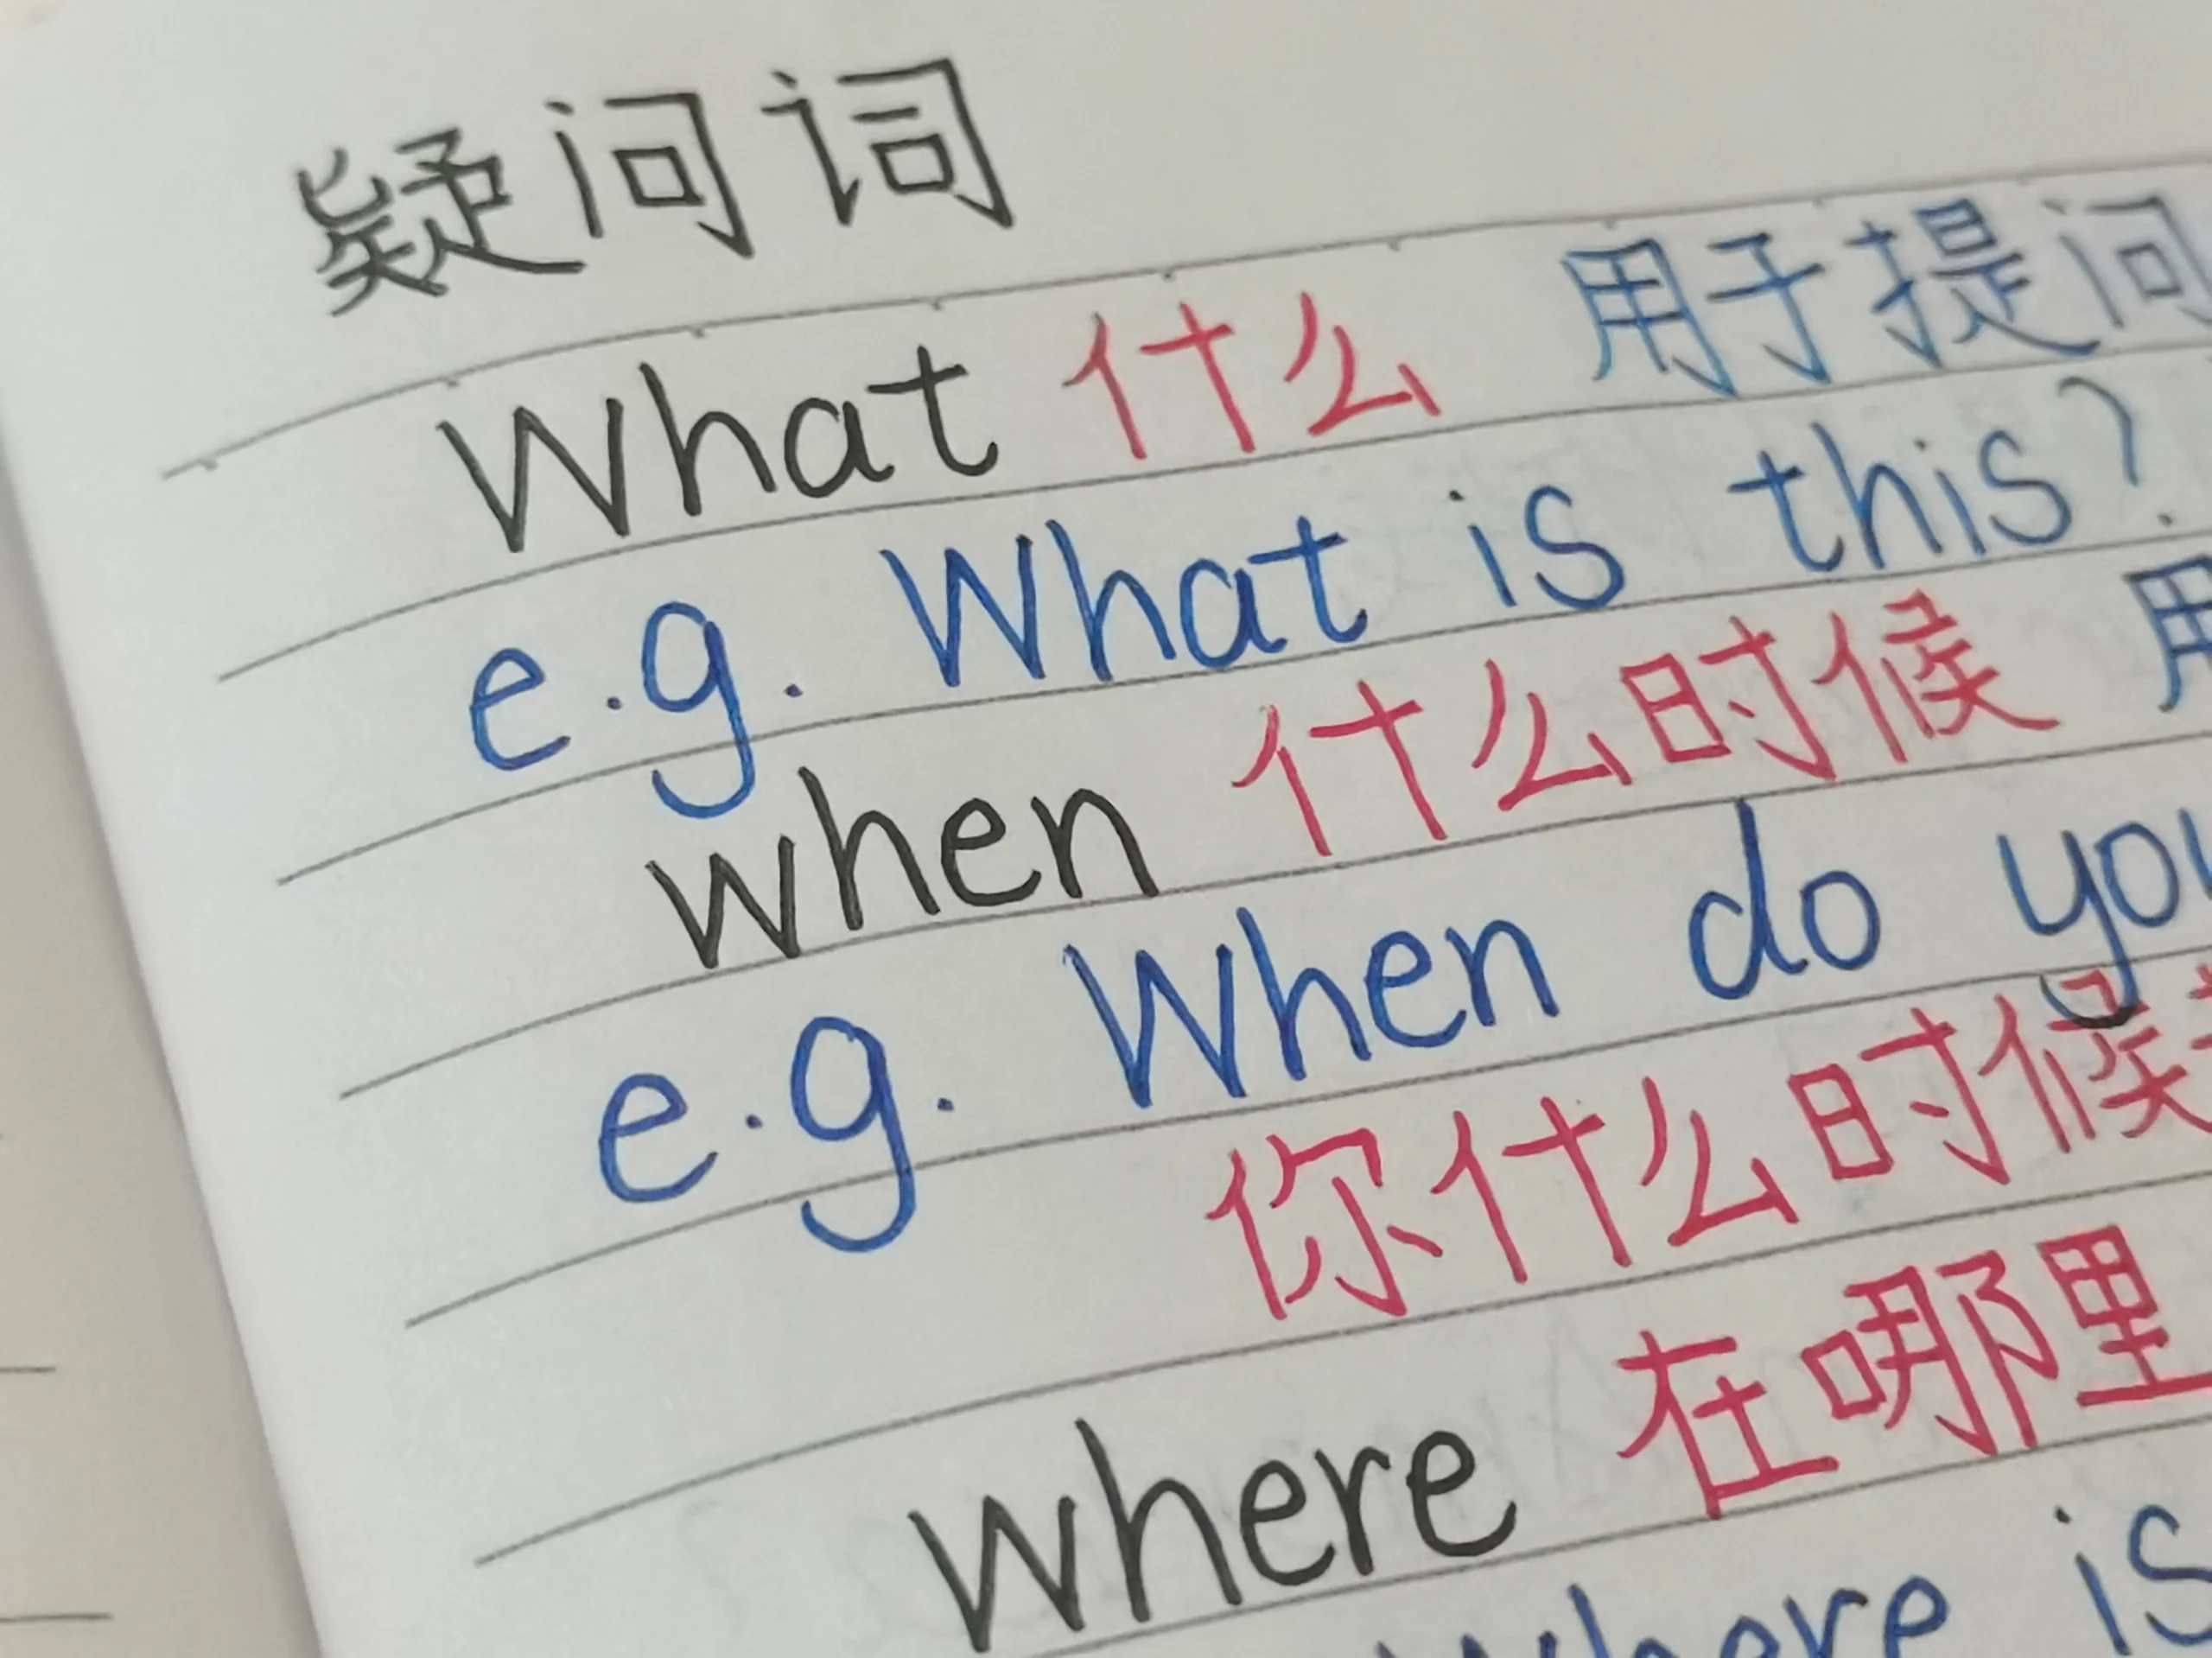 疑问词
What 什么 用于提问
e.g. What is this?
when 什么时候 用
e.g. When do you
你什么时候
where 在哪里
where is